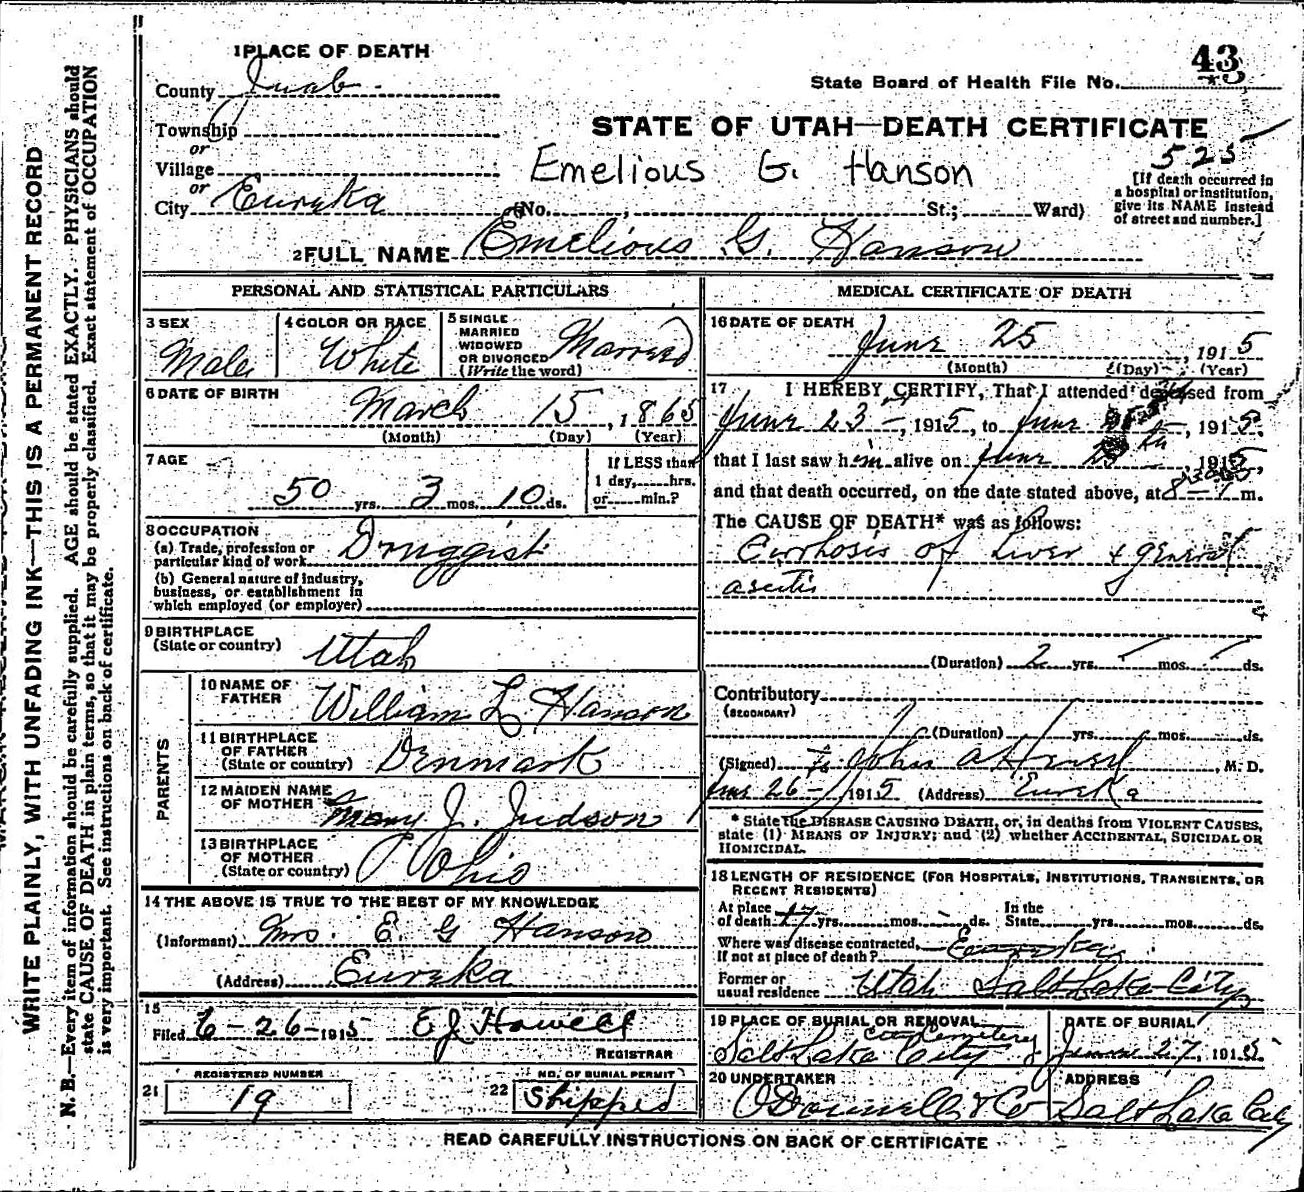 43
State Board of Health File No.
1 PLACE OF DEATH
County Juab
Township
or
Village
or
City Eureka (No. , St.; Ward)
STATE OF UTAH—DEATH CERTIFICATE
Emelious G. Hanson
525
[If death occurred in
a hospital or institution,
give its NAME instead
of street and number.]
2 FULL NAME Emelious G. Hanson
PERSONAL AND STATISTICAL PARTICULARS
3 SEX
Male
4 COLOR OR RACE
White
5 SINGLE
MARRIED
WIDOWED
OR DIVORCED
(Write the word)
Married
6 DATE OF BIRTH
March 15, 1865
(Month) (Day) (Year)
7 AGE
50 yrs. 3 mos. 10 ds.
If LESS than
1 day, hrs.
or min.?
8 OCCUPATION
(a) Trade, profession or
particular kind of work Druggist
(b) General nature of industry,
business, or establishment in
which employed (or employer)
9 BIRTHPLACE
(State or country) Utah
PARENTS
10 NAME OF
FATHER William L. Hanson
11 BIRTHPLACE
OF FATHER
(State or country) Denmark
12 MAIDEN NAME
OF MOTHER Mary J. Judson
13 BIRTHPLACE
OF MOTHER
(State or country) Ohio
14 THE ABOVE IS TRUE TO THE BEST OF MY KNOWLEDGE
(Informant) Mrs. E. G Hanson
(Address) Eureka
15
Filed 6-26-1915 E J Howell
REGISTRAR
REGISTERED NUMBER
21 19
NO. OF BURIAL PERMIT
22 Shipped
MEDICAL CERTIFICATE OF DEATH
16 DATE OF DEATH
June 25, 1915
(Month) (Day) (Year)
17 I HEREBY CERTIFY, That I attended deceased from
June 23-, 1915, to June , 1915.
that I last saw him alive on June , 1915,
and that death occurred, on the date stated above, at m.
The CAUSE OF DEATH* was as follows:
Cirrhosis of Liver & general
ascitis
(Duration) 2 yrs. mos. ds.
Contributory
(SECONDARY)
(Duration) yrs. mos. ds.
(Signed) John , M. D.
June 26-, 1915 (Address) Eureka
* State the DISEASE CAUSING DEATH, or, in deaths from VIOLENT CAUSES,
state (1) MEANS OF INJURY; and (2) whether ACCIDENTAL, SUICIDAL OR
HOMICIDAL.
18 LENGTH OF RESIDENCE (FOR HOSPITALS, INSTITUTIONS, TRANSIENTS, OR
RECENT RESIDENTS)
At place
of death 17 yrs. mos. ds.
In the
State yrs. mos. ds.
Where was disease contracted,
if not at place of death? Eureka
Former or
usual residence Utah Salt Lake City
19 PLACE OF BURIAL OR REMOVAL
City Cemetery
Salt Lake City
DATE OF BURIAL
June 27, 1915
20 UNDERTAKER
O'Donnell & Co
ADDRESS
Salt Lake City
READ CAREFULLY INSTRUCTIONS ON BACK OF CERTIFICATE
WRITE PLAINLY, WITH UNFADING INK—THIS IS A PERMANENT RECORD
N. B.—Every item of information should be carefully supplied. AGE should be stated EXACTLY. PHYSICIANS should
state CAUSE OF DEATH in plain terms, so that it may be properly classified. Exact statement of OCCUPATION
is very important. See instructions on back of certificate.